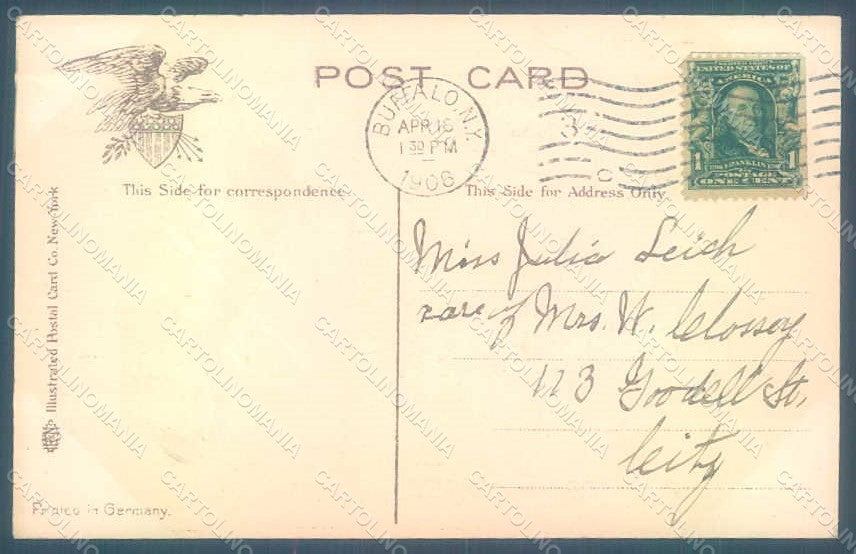 POST CARD
BUFFALO, N.Y.
APR 16
1 30 P M
1906
3
C
UNITED STATES OF
AMERICA
1 FRANKLIN 1
POSTAGE
ONE CENT
This Side for correspondence
This Side for Address Only
Miss Julia Leich
care of Mrs. W. Clossey
113 Goodell St.
City
Illustrated Postal Card Co. New York
Printed in Germany.
CARTOLINOMANIA